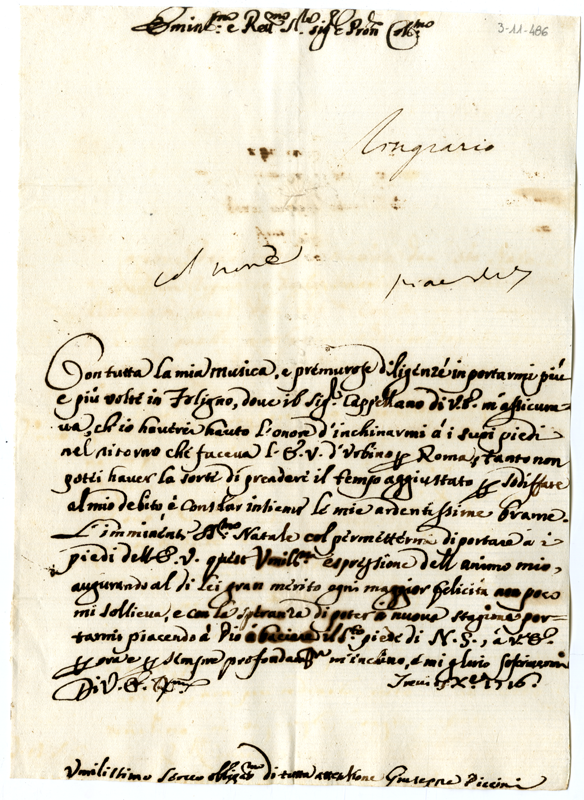 Emin:mo e Rev:mo S:re Sig:r e Pron Col:mo
3-11-486
Ringrazio
col nome
Con tutta la mia musica, e premurose diligenze in portarmi più
e più volte in Foligno, dove il Sig:r Cappellano di V.E. m'assicura-
va, ch'io haverei hauto l'onore d'inchinarmi à i suoi piedi
nel ritorno che faceva l'E.V. d'Urbino p Roma, tanto non
potei haver la sorte di prendere il tempo aggiustato p sodisfare
al mio debito, e consolar insieme le mie ardentissime brame.
L'imminente S:mo Natale col permettermi di portare a i
piedi dell'E.V. quest'Umil:ma espressione dell'animo mio,
augurando al di Lei gran merito ogni maggior felicità non poco
mi sollieva, e con la speranza di poter à nuova stagione por-
tarmi piacendo à Dio à baciare il piede di N.S., à V.E.
p ora e p sempre profondam:te m'inchino, e mi glorio soscrivermi
Di V.E.
Trevi Xbre 1716
Umilissimo Servo obligat:mo di tutta attentione Giuseppe Piccini